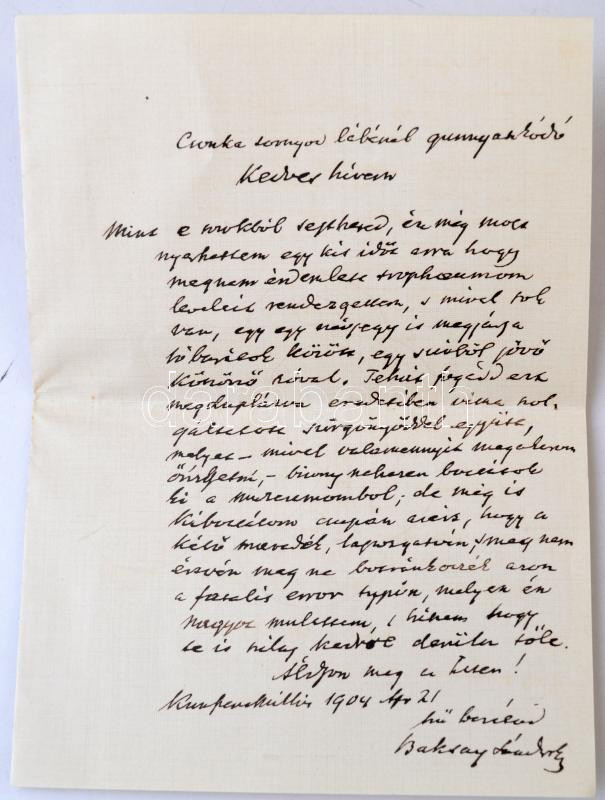 Csonka tornyod lábánál gunnyaszkódó
Kedves hívem
Mint e sorokból sejtheted, én még most
nyerhettem egy kis időt arra hogy
meg nem érdemlett tropheumom
leveleit rendezgettem, s mivel sok
van, egy egy névjegy is megjárja
jó barátok között, egy szívből jövő
köszönő szóval. Tehát fogadd ezt
megduplázva eredetiben vissza szol-
gáltatott sürgönyöddel együtt,
melyet – mivel valamennyit meg akarom
őrizgetni, – bizony nehezen bocsátok
ki a muzeumomból; de még is
kibocsátom csupán azért, hogy a
késő maradék, lapozgatván, s meg nem
értvén meg ne botránkozzék azon
a fatalis error typin, melyen én
nagyot mulattam, s hiszem hogy
te is kedve derülni tőle.
Áldjon meg az Isten!
Kunszentmiklós 1904 Apr 21
hű barátod
Baksay Sándor
databank.hu